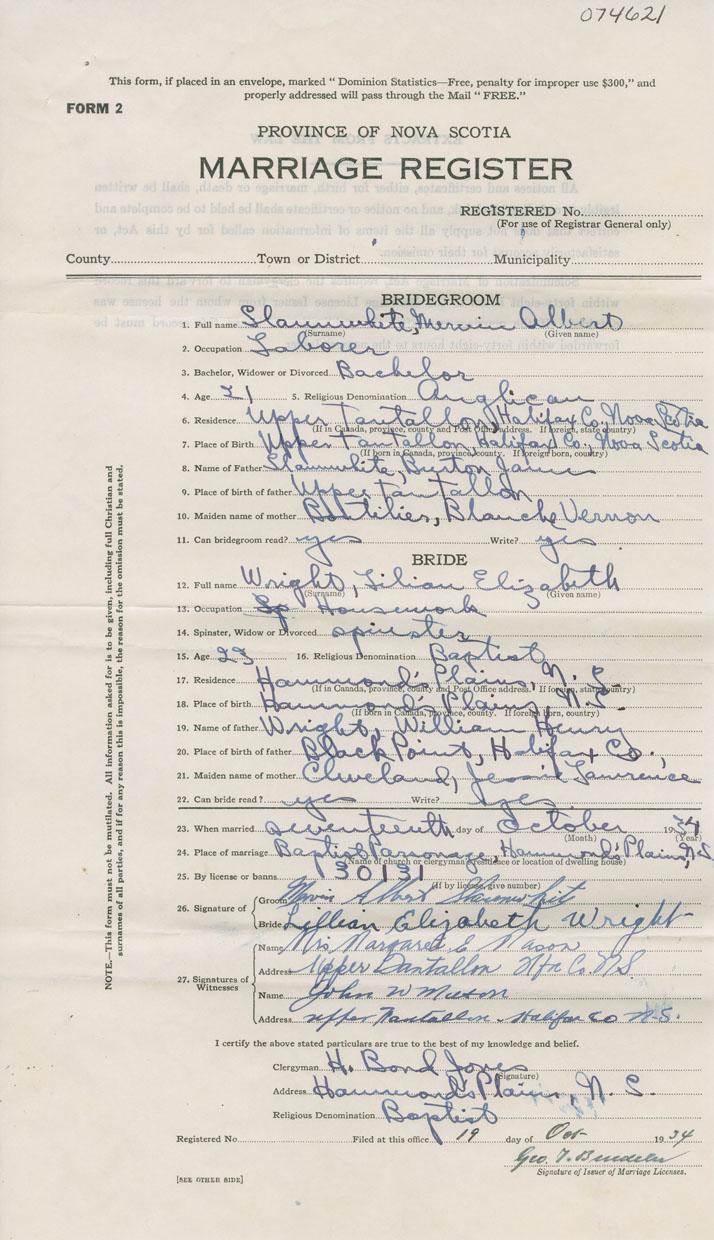 074621
This form, if placed in an envelope, marked " Dominion Statistics—Free, penalty for improper use $300," and
properly addressed will pass through the Mail " FREE."
FORM 2
PROVINCE OF NOVA SCOTIA
MARRIAGE REGISTER
REGISTERED No.
(For use of Registrar General only)
County Town or District Municipality
BRIDEGROOM
1. Full name Slaunwhite, Mervin Albert
(Surname) (Given name)
2. Occupation Laborer
3. Bachelor, Widower or Divorced Bachelor
4. Age 21 5. Religious Denomination Anglican
6. Residence Upper Tantallon, Halifax Co., Nova Scotia
(If in Canada, province, county and Post Office address. If foreign, state country)
7. Place of Birth Upper Tantallon, Halifax Co., Nova Scotia
(If born in Canada, province, county. If foreign born, country)
8. Name of Father Slaunwhite, Burton
9. Place of birth of father Upper Tantallon
10. Maiden name of mother Boutilier, Blanche Vernon
11. Can bridegroom read? yes Write? yes
BRIDE
12. Full name Wright, Lilian Elizabeth
(Surname) (Given name)
13. Occupation Sp Housework
14. Spinster, Widow or Divorced spinster
15. Age 23 16. Religious Denomination Baptist
17. Residence Hammond's Plains, N. S.
(If in Canada, province, county and Post Office address. If foreign, state country)
18. Place of birth Hammond's Plains, N.S.
(If born in Canada, province, county. If foreign born, country)
19. Name of father Wright, William Henry
20. Place of birth of father Black Point, Halifax Co.,
21. Maiden name of mother Cleveland, Jessie Lawrence
22. Can bride read? yes Write? yes
23. When married seventeenth day of October 1934
(Month) (Year)
24. Place of marriage Baptist Parsonage, Hammond's Plains, N.S.
(Name of church or clergyman's residence or location of dwelling house)
25. By license or banns 130131
(If by license, give number)
26. Signature of
Groom Mervin Albert Slaunwhite
Bride Lillian Elizabeth Wright
27. Signatures of Witnesses
Name Mrs Margaret E Mason
Address Upper Tantallon Hfx Co. NS
Name John W Mason
Address upper Tantallon Halifax co N.S.
I certify the above stated particulars are true to the best of my knowledge and belief.
Clergyman H. Bond Jones
(Signature)
Address Hammond's Plains, N. S.
Religious Denomination Baptist
Registered No. Filed at this office 19 day of Oct 1934
Geo. T.
Signature of Issuer of Marriage Licenses.
[SEE OTHER SIDE]
NOTE.—This form must not be mutilated. All information asked for is to be given, including full Christian and
surnames of all parties, and if for any reason this is impossible, the reason for the omission must be stated.